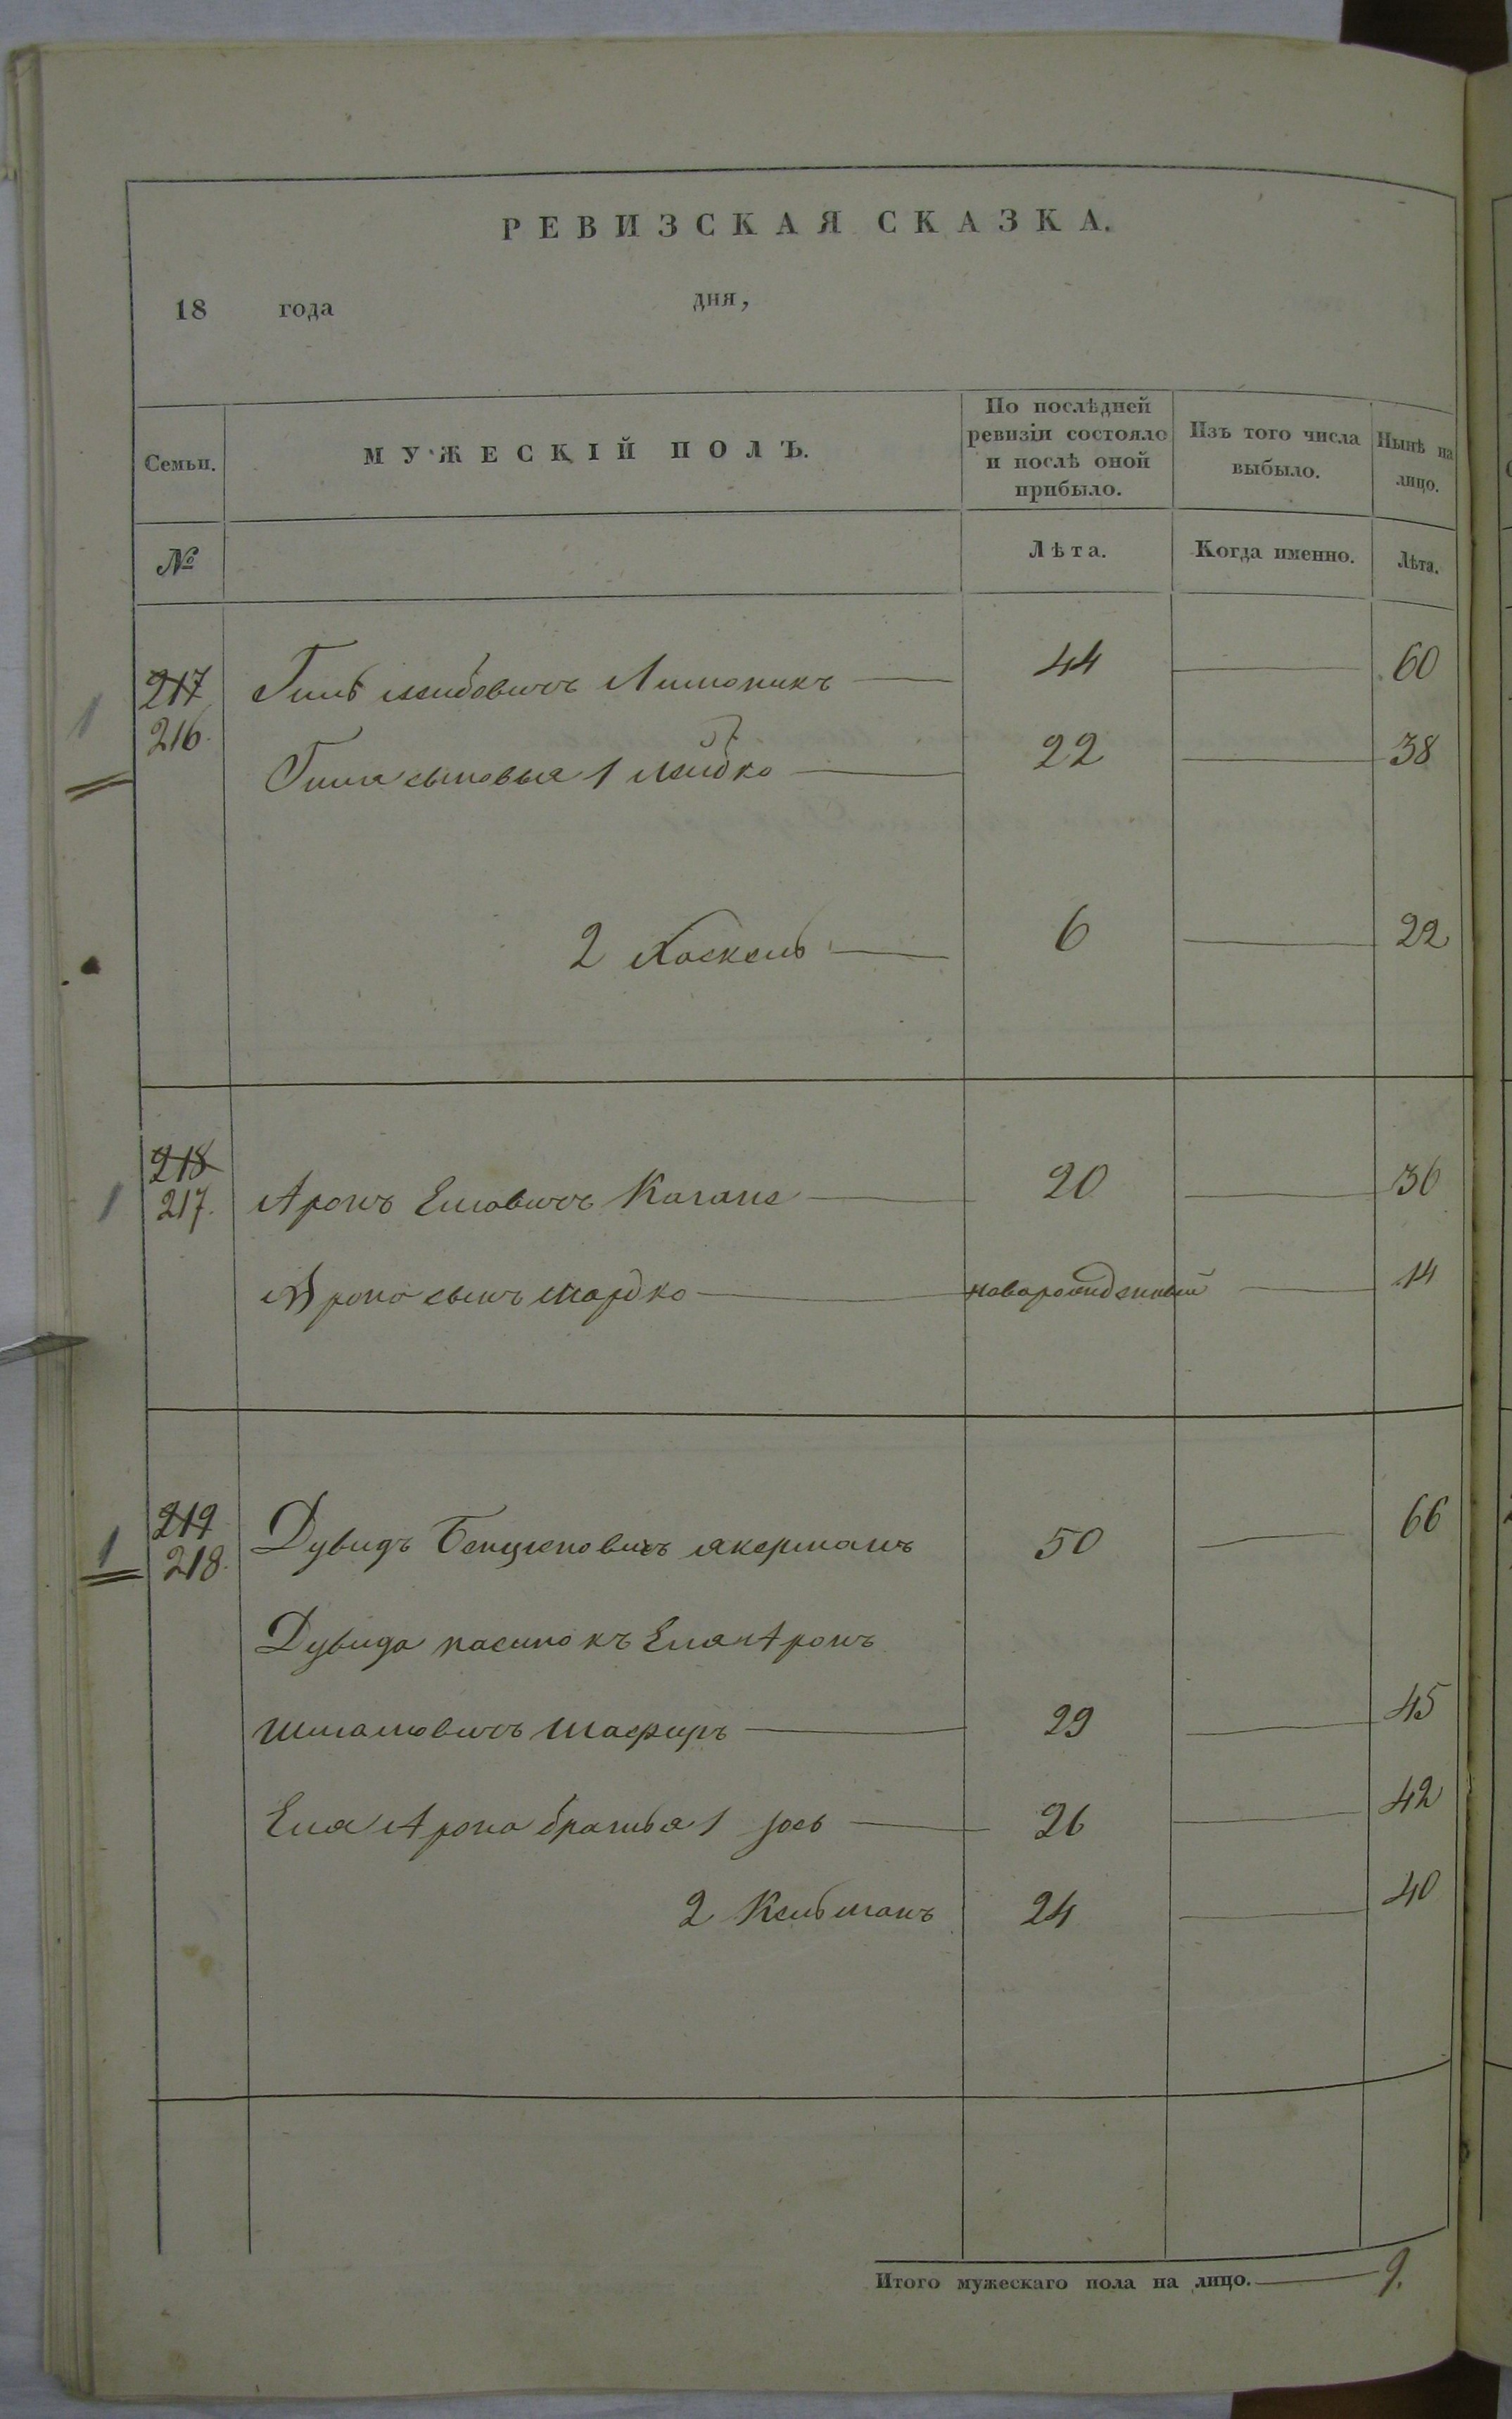 РЕВИЗСКАЯ СКАЗКА.
18 года дня,
Семьи. МУЖЕСКІЙ ПОЛЪ. По послѣдней ревизіи состояло и послѣ оной прибыло. Изъ того числа выбыло. Нынѣ на лицо.
№ Лѣта. Когда именно. Лѣта.
1 217 44 60
216. сыновья 1 22 38
2 Хаскель 6 22
218
1 217. Аронъ Еліовичъ Кагане 20 36
Арона сынъ Мордко новорожденный 14
219
1 218. Дувидъ Бенціеновичъ Акерманъ 50 66
Дувида пасинокъ Еля Аронъ
Шмановичъ Шафиръ 29 45
Еля Арона братья 1 Іось 26 42
2 Кельманъ 24 40
Итого мужескаго пола на лицо. 9.